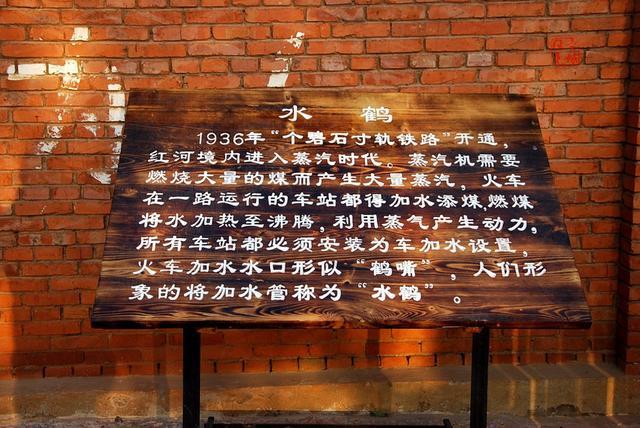 水 鹤
1936年“个碧石寸轨铁路”开通，
红河境内进入蒸汽时代。蒸汽机需要
燃烧大量的煤而产生大量蒸汽，火车
在一路运行的车站都得加水添煤,燃煤
将水加热至沸腾，利用蒸气产生动力，
所有车站都必须安装为车加水设置，
火车加水水口形似“鹤嘴”，人们形
象的将加水管称为“水鹤”。